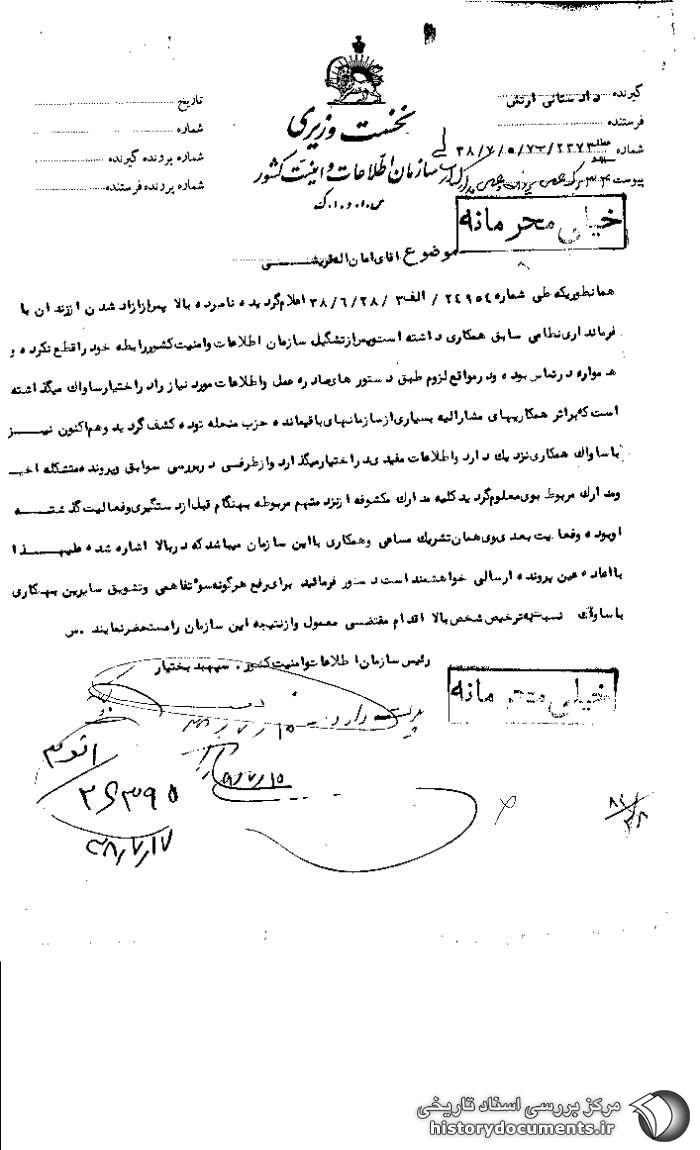 گیرنده دادستانی ارتش
فرستنده
شماره
پیوست
تاریخ
شماره
شماره پرونده گیرنده
شماره پرونده فرستنده
نخست وزیری
سازمان اطلاعات و امنیت کشور
س.ا.و.ا.ک
خیلی محرمانه
موضوع آقای امان اله قریشی
همانطوریکه طی شماره ۲٤۹۵٤ / الف۳ / ۳۸/٦/۲۸ اعلام گردیده نامبرده بالا پس از آزاد شدن از زندان با
فرمانداری نظامی سابق همکاری داشته است و پس از تشکیل سازمان اطلاعات و امنیت کشور رابطه خود را قطع نکرده و
همواره در تماس بوده و در مواقع لزوم طبق دستورهای صادره عمل و اطلاعات مورد نیاز را در اختیار ساواک میگذاشته
است که بر اثر همکاریهای مشارالیه بسیاری از سازمانهای باقیمانده حزب منحله توده کشف گردید و هم اکنون نیز
با ساواک همکاری نزدیک دارد و اطلاعات مفیدی در اختیار میگذارد و از طرفی در بررسی سوابق و پرونده متشکله اخیر
و مدارک مربوط بوی معلوم گردید کلیه مدارک مکشوفه از نزد متهم مربوطه بهنگام قبل از دستگیری و فعالیت گذشته
او بوده و فعالیت بعدی وی همان تشریک مساعی و همکاری با این سازمان میباشد که در بالا اشاره شده علیهذا
با اعاده عین پرونده ارسالی خواهشمند است دستور فرمائید برای رفع هرگونه سوء تفاهمی و تشویق سایرین بهمکاری
با ساواک نسبت به ترخیص شخص بالا اقدام مقتضی معمول و از نتیجه این سازمان را مستحضر نمایند .س
رئیس سازمان اطلاعات و امنیت کشور . سپهبد بختیار
خیلی محرمانه
۲٦۳۹۵
۳۸/۷/۱۷
مرکز بررسی اسناد تاریخی
historydocuments.ir